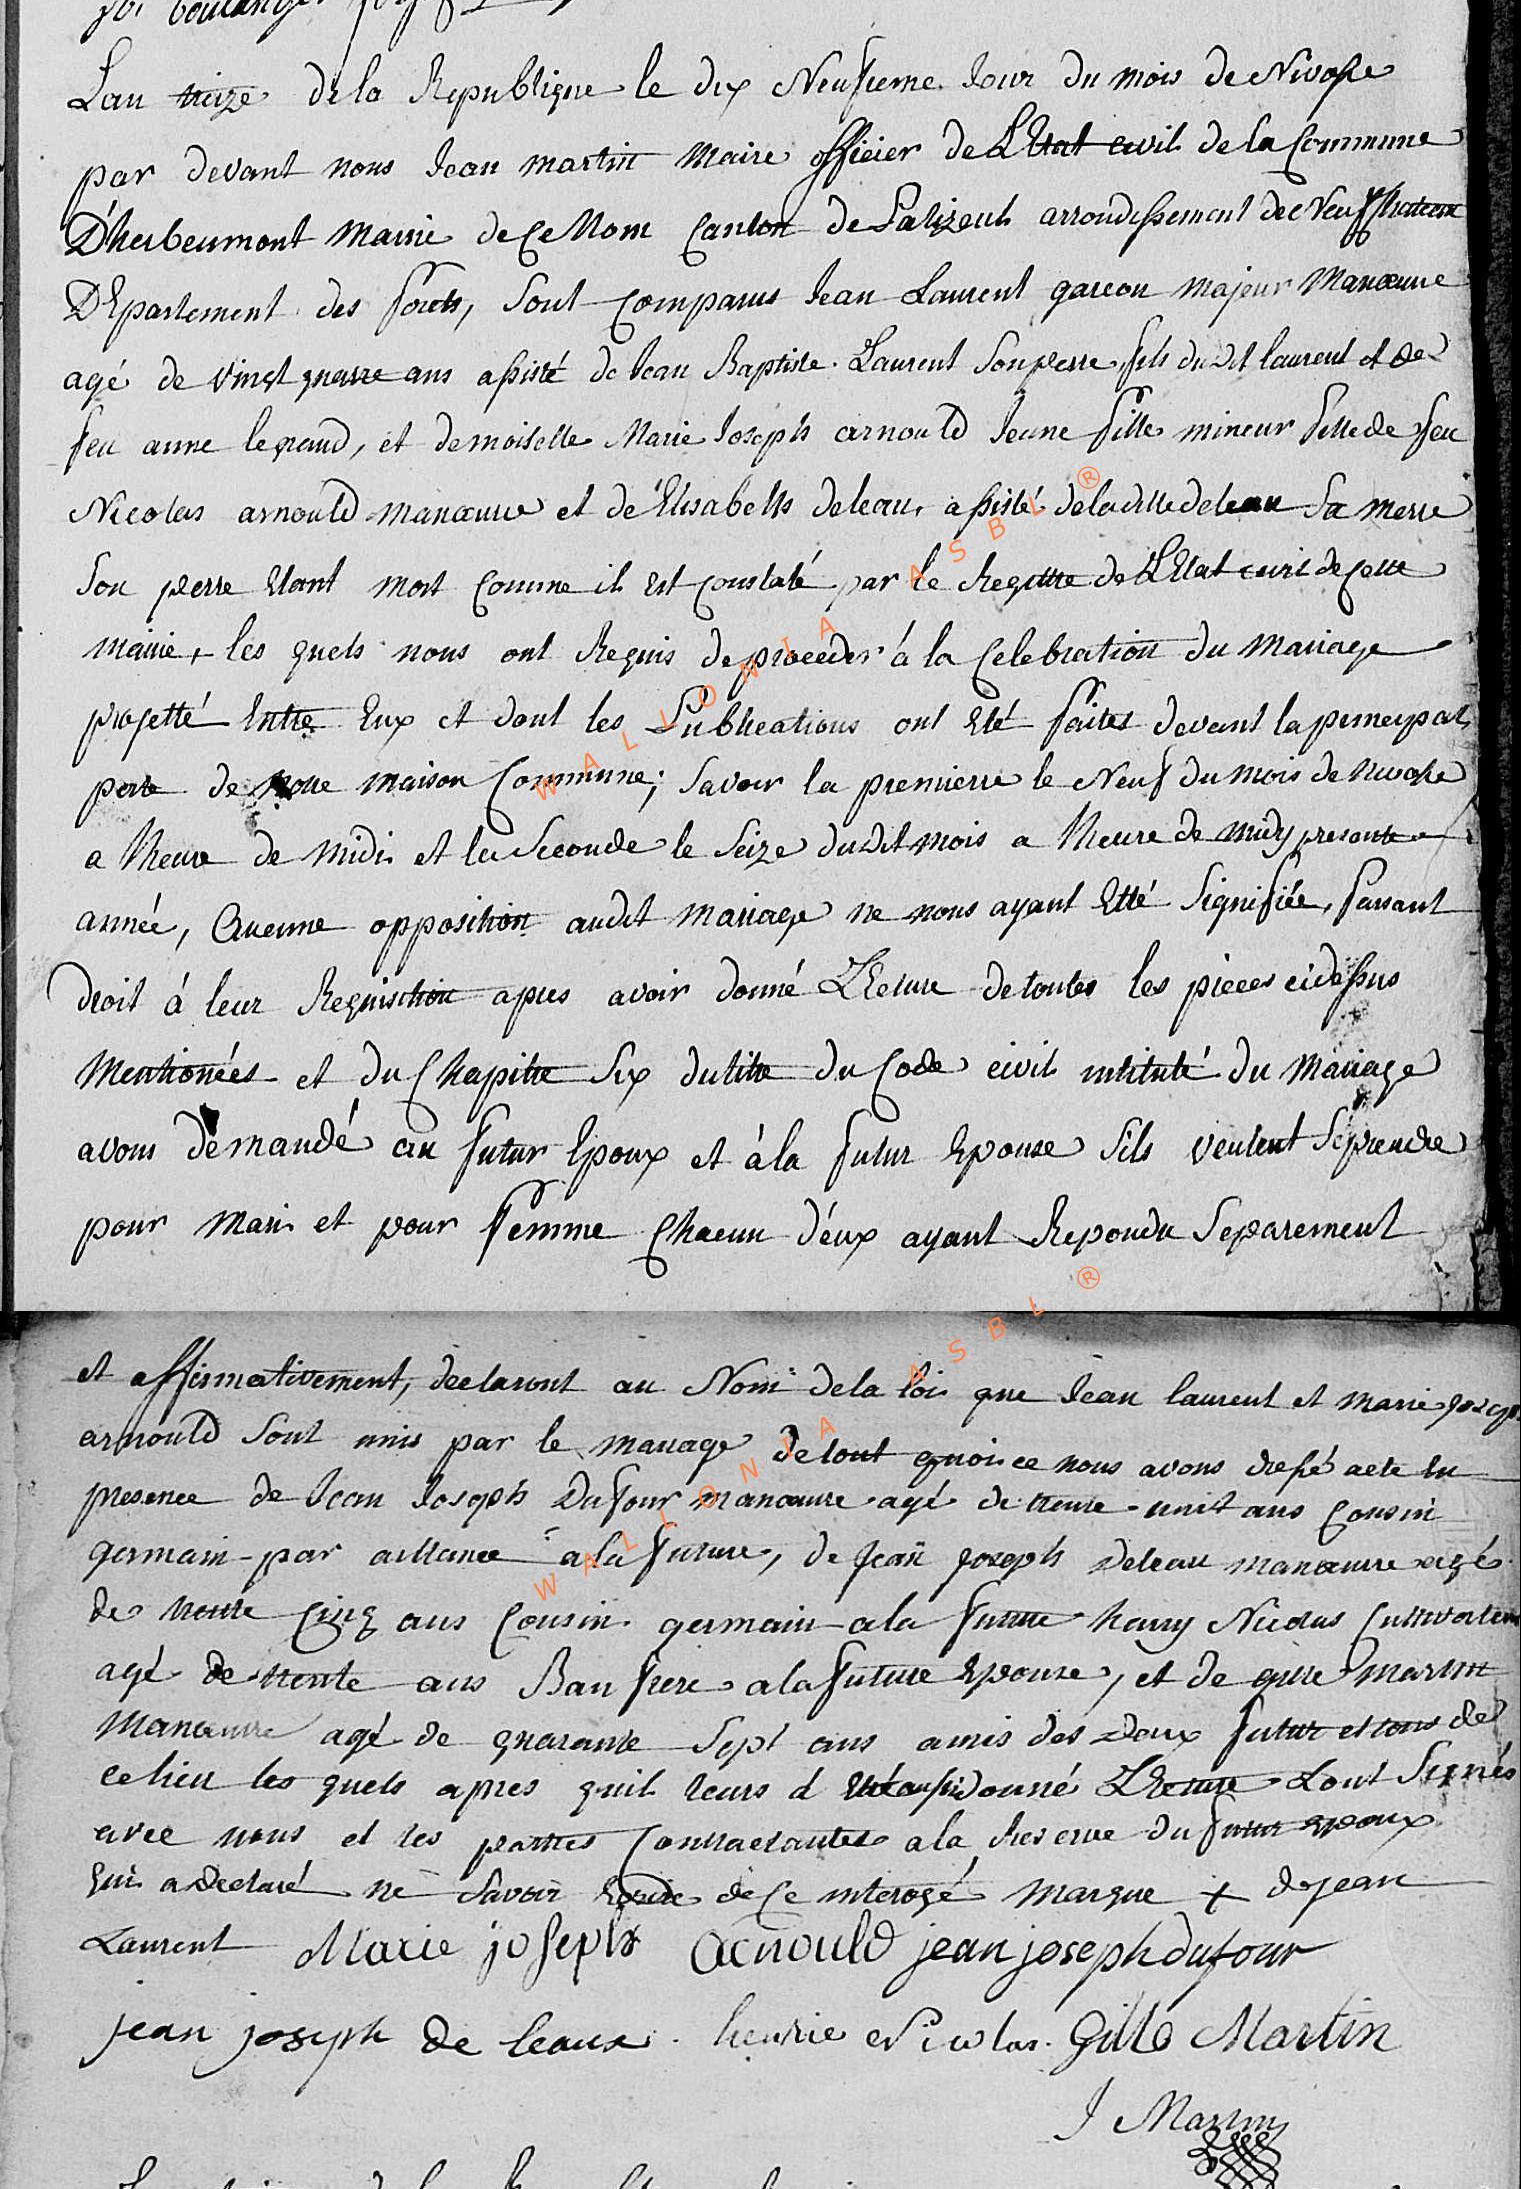 Lan treize de la Republique le dix Neufieme Jour du mois de Nivose
par devant nous Jean martin Maire officier de L'Etat civil de la Commune
D'herbeumont Mairie de Ce Nom Canton de Palizeul arrondissement de Neufchateau
DEpartement des forets, sont Comparus Jean Laurent garcon majeur Manœuvre
agé de vingt quatre ans assisté de Jean Baptiste Laurent son perre fils du dit laurent et de
feu anne legrand, et demoiselle Marie Joseph arnould Jeune fille mineur fille de feu
Nicolas arnould manœuvre et de Elisabeth deleau, assisté de la ditte deleau Sa merre
Son perre Etant mort Comme il Est Constaté par le Registre de L'Etat civil de Cette
mairie, les quels nous ont Requis de proceder á la Celebration du Mariage
projetté Entre Eux et dont les Publications ont Eté faites devant la principal
porte de notre maison Commune; Savoir la premierre le Neuf du mois de Nivose
a l'heure de midi et la Seconde le Seize du dit mois a l'heure de midy presente
année, Aucune opposition audit mariage ne nous ayant Etté Signifiée, faisant
droit á leur Requisition apres avoir donné LEcture de toutes les pieces ci dessus
Mentionées et du Chapitre Six du titre du Code civil intitulé du Mariage
avons demandé au futur Epoux et á la futur Epouse S'ils veulent Se prendre
pour Mari et pour femme Chacun d'eux ayant Repondu Separement
et affirmativement, declaront au Nom de la loi que Jean laurent et marie Joseph
arnould Sont unis par le mariage de tout quoi ce nous avons dressé acte En
presence de Jean Joseph Dufour manœuvre agé de trente-huit ans Cousin
germain par alliance a la future, de Jean Joseph Deleau manœuvre agé
de trente Cinq ans Cousin germain a la future henry Nicolas Cultivateur
agé de trente ans Bau frere a la future Epouse, et de gille Martin
Manœuvre agé de quarante Sept ans amis des Deux futur et tous de
ce lieu les quels apres quil leurs á Eté aussi donné LEcture L'ont Signés
avec nous et les parties Contractantes a la Reserve du futur Epoux
qui a declaré ne Savoir Ecrire de Ce interogé Marque + de jean
Laurent Marie joseph arnould jean joseph dufour
jean joseph de leaux henrie Nicolas Gille Martin
J Martin
WALLONIA ASBL ®
WALLONIA ASBL ®